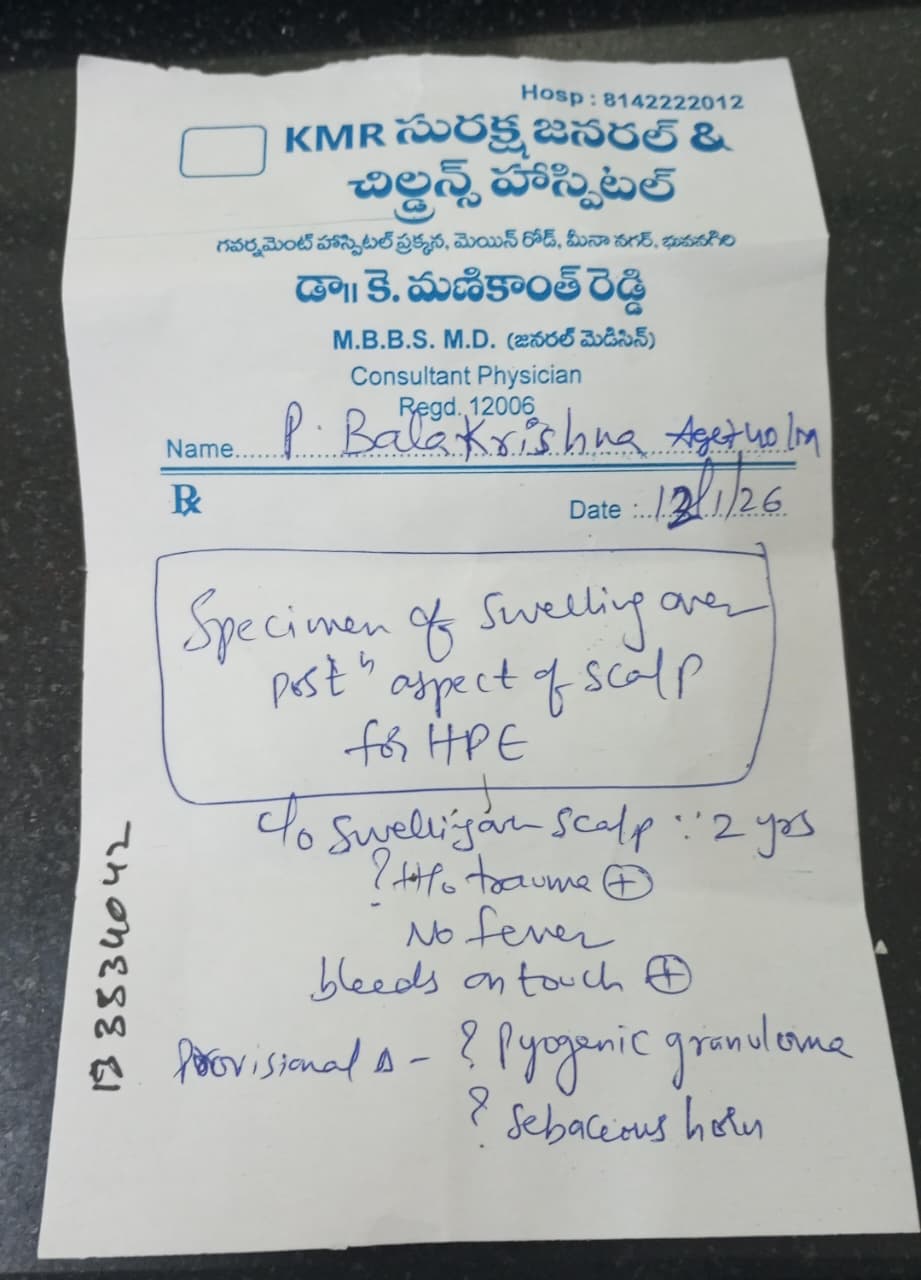 Hosp : 8142222012
KMR సురక్ష జనరల్ &
చిల్డ్రన్స్ హాస్పిటల్
గవర్నమెంట్ హాస్పిటల్ ప్రక్కన, మెయిన్ రోడ్, మీనా నగర్, భువనగిరి
డా॥ కె. మణికాంత్ రెడ్డి
M.B.B.S. M.D. (జనరల్ మెడిసిన్)
Consultant Physician
Regd. 12006
Name.... P. Balakrishna Age 40/m
Rx
Date :.. 12/1/26
Specimen of Swelling over
postr aspect of scalp
for HPE
c/o swelling over scalp :: 2 yrs
? H/o trauma ⊕
No fever
bleeds on touch ⊕
Provisional Δ - ? Pyogenic granuloma
? Sebaceous horn